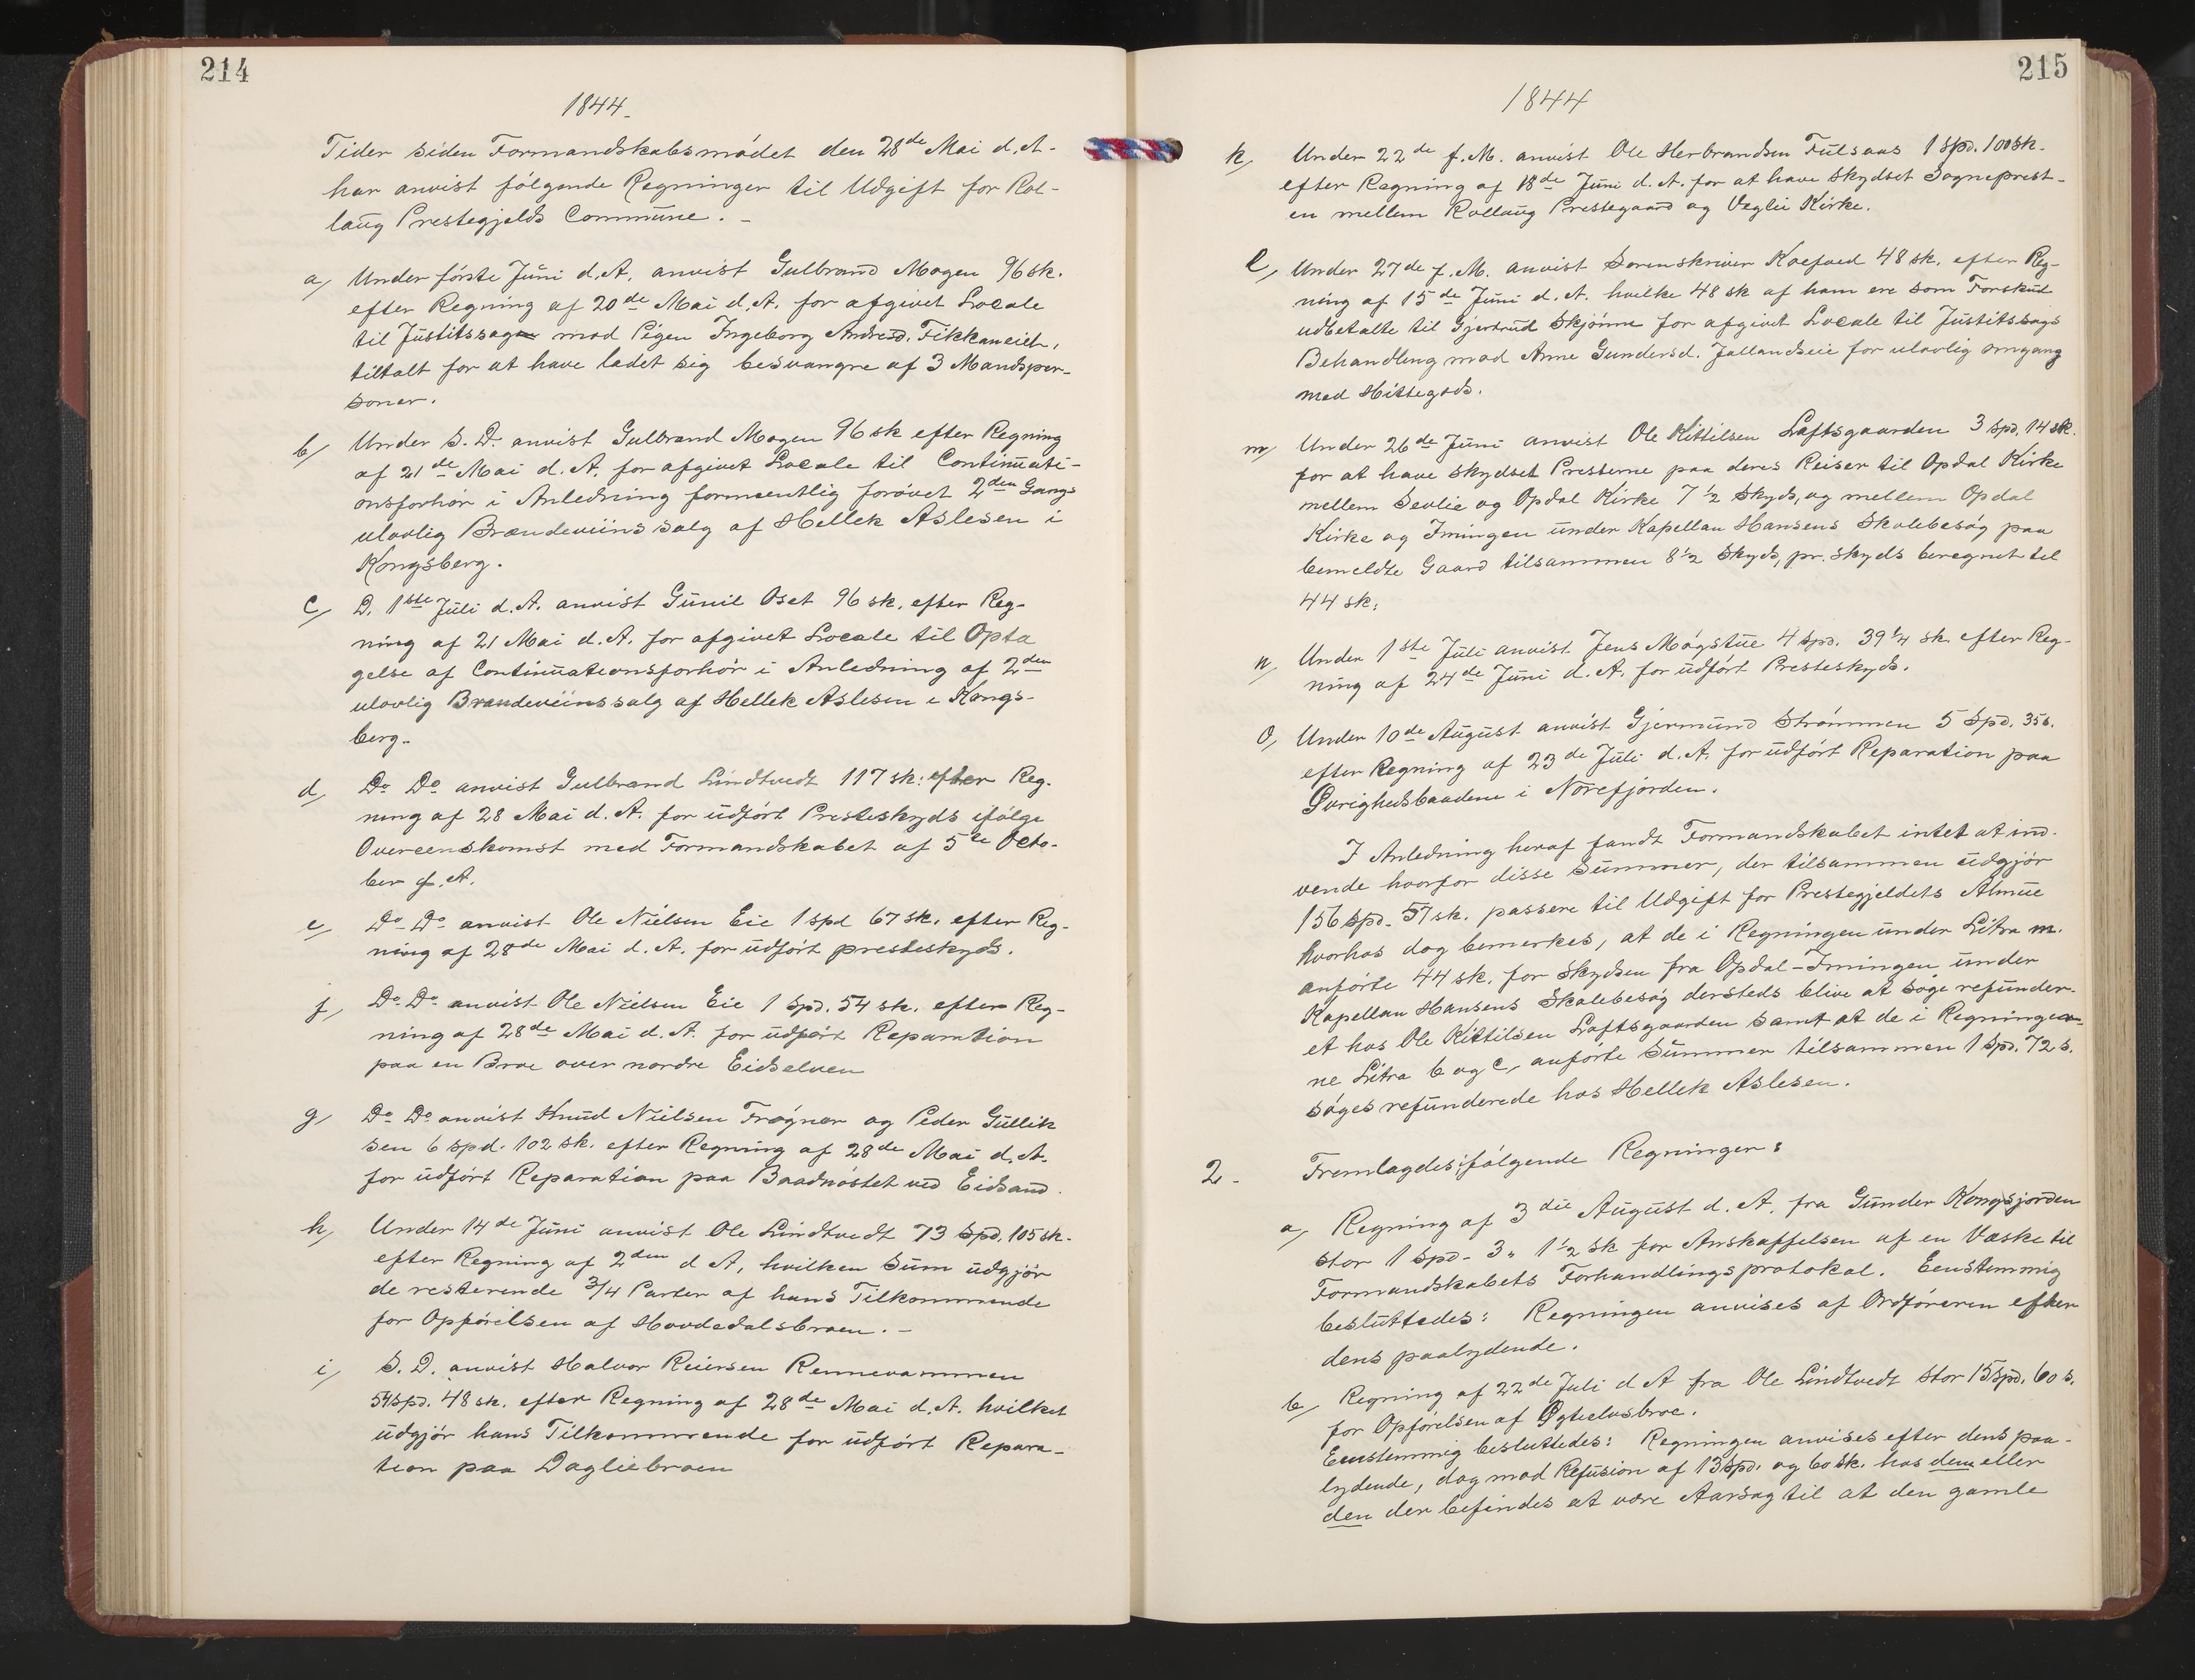 214
1844.
Tider siden Formandskabsmødet den 28de Mai d. A.
har anvist følgende Regninger til Udgift for Rol-
laug Prestegjelds Commune. -
a/ Under første Juni d. A. anvist Gulbrand Mogen 96 sk.
efter Regning af 20de Mai d. A. for afgivet Locale
til Justitssag mod Pigen Ingeborg Andresd. Fikkaneiet,
tiltalt for at have ladet sig besvangre af 3 Mandsper-
soner.
b/ Under S. D. anvist Gulbrand Mogen 96 sk efter Regning
af 21de Mai d. A. for afgivet Locale til Continuati-
onsforhør i Anledning formeentlig forøvet 2den Gangs
ulovlig Brændeviinssalg af Hellek Aslesen i
Kongsberg.
c/ D. 1ste Juli d. A. anvist Gunil Oset 96 sk. efter Reg-
ning af 21 Mai d. A. for afgivet Locale til Opta
gelse af Continuationsforhør i Anledning af 2den
ulovlig Brændeviinssalg af Hellek Aslesen i Kongs-
berg.
d/ Do Do anvist Gulbrand Lindtvedt 117 sk: efter Reg.
ning af 28 Mai d. A. for udført Presteskyds ifølge
Overeenskomst med Formandskabet af 5te Octo-
ber f. A.
e/ Do Do anvist Ole Nielsen Eie 1 spd 67 sk. efter Reg-
ning af 28de Mai d. A. for udført presteskyds.
f/ Do Do anvist Ole Nielsen Eie 1 Spd. 54 sk. efter Reg-
ning af 28de Mai d. A. for udført Reparation
paa en Broe over nordre Eidselven
g/ Do Do anvist Knud Nielsen Frøgner og Peder Gullik
sen 6 spd. 102 sk. efter Regning af 28de Mai d. A.
for udført Reparation paa Baadnøstet ved Eidsand.
h/ Under 14de Juni anvist Ole Lindtvedt 73 Spd. 105 sk.
efter Regning af 2den d A, hvilken Sum udgjør
de resterende 3/4 Parter af hans Tilkommende
for Opførelsen af Hovdedalsbroen. -
i/ S. D. anvist Halvor Reiersen Rennevammen
54 spd. 48 sk. efter Regning af 28de Mai d. A. hvilket
udgjør hans Tilkommende for udført Repara-
tion paa Dagliebroen
215
1844
k/ Under 22de f. M. anvist Ole Herbrandsen Fulsaas 1 Spd. 100 sk.
efter Regning af 18de Juni d. A. for at have Skydset Sogneprest-
en mellem Rollaug Prestegaard og Veglie Kirke.
l/ Under 27de f. M. anvist Sorenskriver Koefoed 48 sk. efter Reg-
ning af 15de Juni d. A. hvilke 48 sk af ham ere som Forskud
udbetalte til Gjertrud Skjønne for afgivet Locale til Justitssags
Behandling mod Anne Gundersd. Jallandseie for ulovlig omgang
med Hittegods.
m/ Under 26de Juni anvist Ole Kittilsen Loftsgaarden 3 Spd. 14 sk.
for at have skydset Presterne paa deres Reiser til Opdal Kirke
mellem Sevlie og Opdal Kirke 7 1/2 Skyds, og mellem Opdal
Kirke og Imingen under Kapellan Hansens Skolebesøg paa
bemeldte Gaard tilsammen 8 1/2 Skyds, pr. skyds beregnet til
44 sk:
n/ Under 1ste Juli anvist Jens Møgstue 4 Spd. 39 1/4 sk. efter Reg-
ning af 24de Juni d. A. for udført Presteskyds.
o/ Under 10de August anvist Gjermund Strømmen 5 Spd. 35 s.
efter Regning af 23de Juli d. A. for udført Reparation paa
Øvrighedsbaadene i Norefjorden.
I Anledning heraf fandt Formandskabet intet at ind-
vende hvorfor disse Summer, der tilsammen udgjør
156 Spd. 57 sk. passere til Udgift for Prestegjeldets Almue
hvorhos dog bemerkes, at de i Regningen under Litra m.
anførte 44 sk. for skydsen fra Opdal-Imingen under
Kapellan Hansens Skolebesøg dersteds blive at søge refunder-
et hos Ole Kittilsen Loftsgaarden samt at de i Regninger-
ne Litra b og c, anførte Summer tilsammen 1 Spd. 72 s.
søges refunderede hos Hellek Aslesen.
2. Fremlagdes følgende Regninger:
a/ Regning af 3die August d. A. fra Gunder Kongsjorden
stor 1 Spd. 3 " 1 1/2 sk for Anskaffelsen af en Væske til
Formandskabets Forhandlingsprotokol. Eenstemmig
besluttedes: Regningen anvises af Ordføreren efter
dens paalydende.
b/ Regning af 22de Juli d A fra Ole Lindtvedt stor 15 Spd. 60 s.
for Opførelsen af broe.
Eenstemmig besluttedes: Regningen anvises efter dens paa-
lydende, dog mod Refusion af 13 Spd. og 60 sk. hos dem eller
den der befindes at være Aarsag til at den gamle